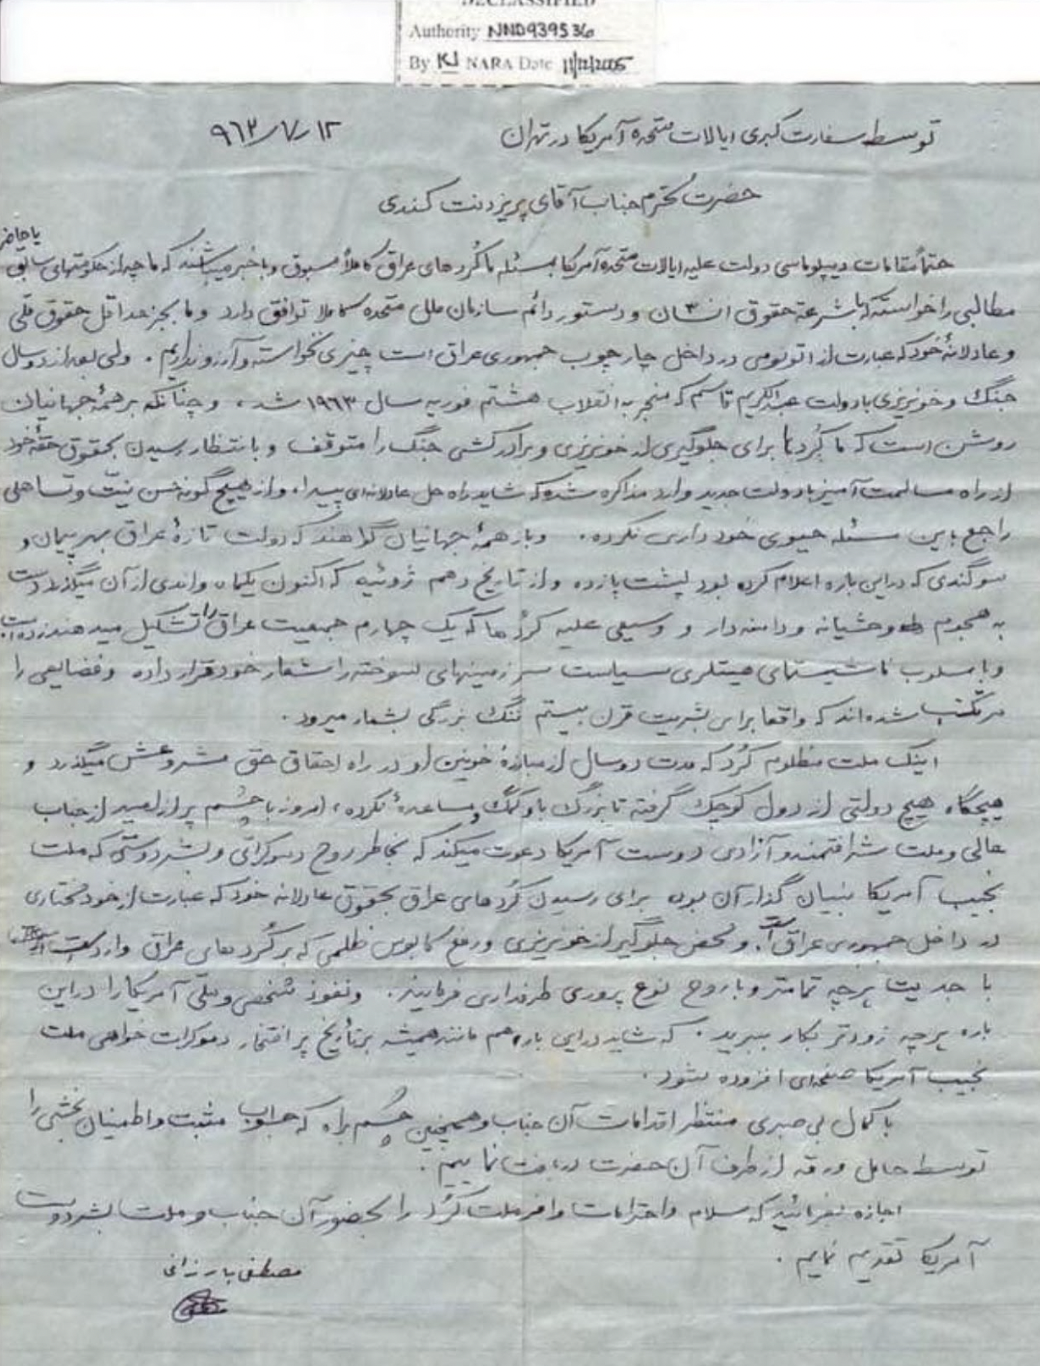 DECLASSIFIED
Authority NND939536
By KJ NARA Date 11/12/2005
توسط سفارت کبری ایالات متحده آمریکا در تهران
۹۶۳/۷/۱۲
حضرت محترم جناب آقای پریزدنت کندی
یا حاضر
حتماً مقامات دیپلوماسی دولت علیه ایالات متحده آمریکا بمسئله ما کُردهای عراق کاملاً مسبوق و باخبر میباشند که ما چه از حکومتهای سابق
مطالبی را خواسته که با شرعة حقوق انسان و دستور دائم سازمان ملل متحده کاملا توافق دارد و ما بجز حداقل حقوق ملی
و عادلانهٔ خود که عبارت از اتونومی در داخل چارچوب جمهوری عراق است چیزی نخواسته و آرزو نداریم . ولی بعد از دو سال
جنگ و خونریزی با دولت عبدالکریم قاسم که منجر به انقلاب هشتم فوریه سال ۱۹۶۳ شد ، و چنانکه بر همهٔ جهانیان
روشن است که ما کُردها برای جلوگیری از خونریزی و برادرکشی جنگ را متوقف و با نتظار رسیدن بحقوق حقهٔ خود
از راه مسالمت آمیز با دولت جدید وارد مذاکره شده که شاید راه حل عادلانه‌ای پیدا ، و از هیچ گونه حسن نیّت و تساهلی
راجع باین مسئله حیوی خودداری نکرده . و باز همهٔ جهانیان گواهند که دولت تازهٔ عراق بهر پیمان و
سوگندی که در این باره اعلام کرده بود پشت پا زده و از تاریخ دهم ژوئیه که اکنون یکماه و اندی از آن میگذرد دست
به هجوم وحشیانه و دامنه دار و وسیعی علیه کردها که یک چهارم جمعیت عراق را تشکیل میدهند زده است
و با سلوب فاشیستهای هیتلری سیاست سرزمینهای سوخته را شعار خود قرار داده و فضایعی را
مرتکب شده‌اند که واقعا برای بشریت قرن بیستم ننگ بزرگی بشمار میرود .
اینک ملت مظلوم کُرد که مدت دو سال از مبارزهٔ خونین او در راه احقاق حق مشروعش میگذرد و
هیچگاه هیچ دولتی از دول کوچک گرفته تا بزرگ باو کمک و مساعدهٔ نکرده ، امروز با چشم پر از امید از جناب
عالی و ملت شرافتمند و آزادی دوست آمریکا دعوت میکند که بخاطر روح دموکراتی و بشر دوستی که ملت
نجیب آمریکا بنیان گذار آن بوده برای رسیدن کُردهای عراق بحقوق عادلانه خود که عبارت از خود مختاری
در داخل جمهوری عراق است . و محض جلوگیر از خونریزی و رفع کابوس ظلمی که بر کُردهای عراق وارد
با جدیت هر چه تمامتر و با روح نوع پروری طرفداری فرمایند . و نفوذ شخصی و ملّی آمریکا را در این
باره هر چه زودتر بکار ببرید . که شاید در این باره هم مانند همیشه بر تأریخ پر افتخار دموکرات خواهی ملت
نجیب آمریکا صفحه‌ای افزوده بشود .
با کمال بی صبری منتظر اقدامات آن جناب و همچنین چشم براه که جواب مثبت و اطمینان بخشی را
توسط حامل ورقه از طرف آن حضرت دریافت نماییم .
اجازه بفرمائید که سلام و احترامات وافر ملت کُرد را بحضور آن جناب و ملت بشر دوست
آمریکا تقدیم نمایم .
مصطفی بارزانی